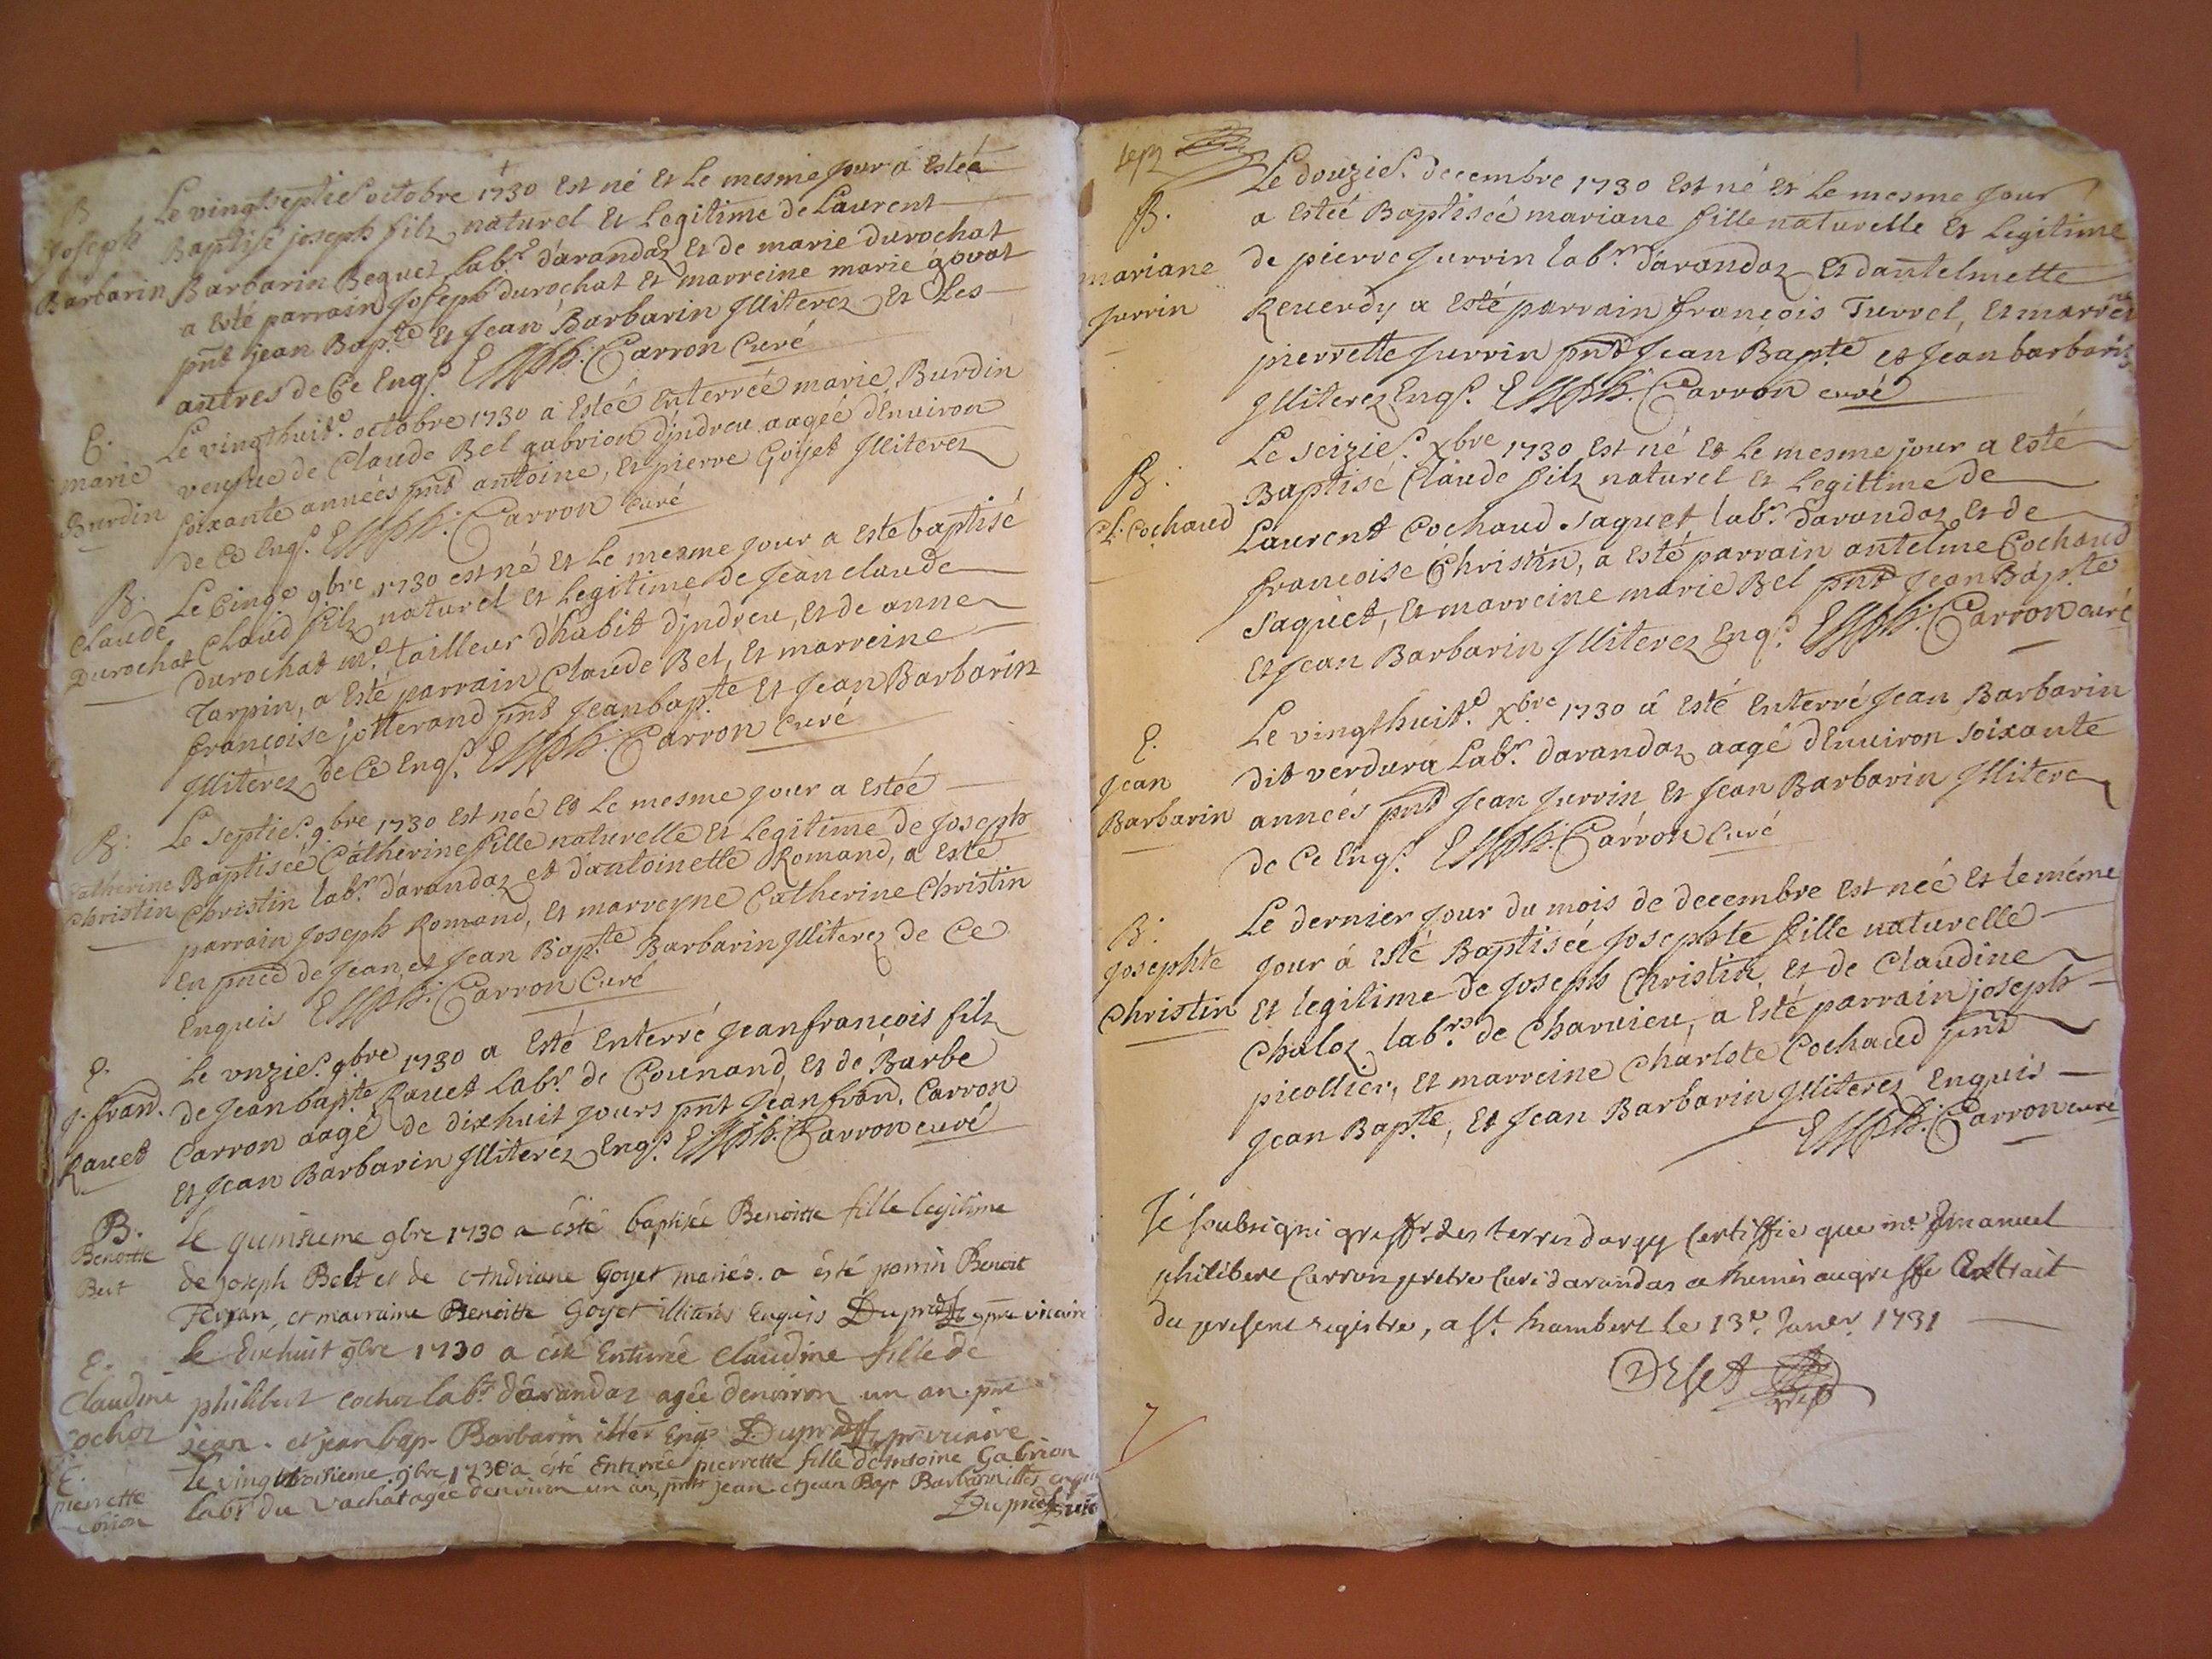 B
Joseph
Barbarin
Le vingtseptie octobre 1730 Est né Et Le mesme Jour a Estéé
Baptisé joseph filz naturel Et Legitime de Laurent
Barbarin Beguet lab.r d'arandaz Et de marie durochat
a Esté parrain Joseph durochat Et marreine marie govat
pnt jean Bap.te Et Jean Barbarin Jlliterez Et Les
autres de Ce Enq.s Carron Curé
E.
marie
Burdin
Le vingthuit.e octobre 1730 a Estéé Enterréé marie Burdin
veufve de Claude Bel gabrion d'jndreu aagéé d'Enuiron
soixante annéés pnt antoine, Et pierre Goyet Jlliterez
de Ce Enq.s Carron Curé
B.
Claude
Durochat
Le Cinq.e 9bre 1730 est né Et Le mesme Jour a Esté baptisé
Claud filz naturel Et Legitime de Jean claude
durochat m.e tailleur d'habit d'jndreu, Et de anne
Tarpin, a Esté parrain Claude Bel, Et marreine
françoise jotterand pnt Jean bap.te Et Jean Barbarin
Jlliterez de Ce Enq.s Carron Curé
B.
Catherine
Christin
Le septie.e 9bre 1730 Est néé Et Le mesme Jour a Estéé
Baptiséé Catherine fille naturelle Et Legitime de Joseph
Christin lab.r d'arandaz et d'antoinette Romand, a Esté
parrain Joseph Romand, Et marreyne Catherine Christin
En pnce de Jean, et Jean Bap.te Barbarin Jlliterez de Ce
Enquis Carron Curé
E.
j. fran.
Rauet
Le vnzie.e 9bre 1730 a Esté Enterré Jeanfrançois filz
de Jean bap.te Rauet Lab.r de Counand, Et de Barbe
Carron aagé de dixhuit Jours pnt Jean fran. Carron
Et Jean Barbarin Jlliterez Enq.s Carron curé
B.
Benoitte
Belt
Le quinsieme 9bre 1730 a été baptisée Benoitte fille legitime
de Joseph Belt et de Andriane Goyet mariés. a été parrin Benoit
et marraine Benoitte Goyet illitérés Enquis vicaire
E.
Claudine
Cochoz
le Dixhuit 9bre 1730 a été Enterrée Claudine fille de
philibert cochoz lab.r d'arandaz agée denviron un an. pnt
jean. et jean bap. Barbarin illit.r Enq.s vicaire
E.
pierrette
le vingttroisieme. 9bre 1730 a été Enterrée pierrette fille d'Antoine Gabrion
lab.r du vachat agée denviron un an, pnts jean et jean Bap.t Barbarin illités enquis
B.
mariane
Jurrin
Le douzie.e decembre 1730 Est né Et Le mesme Jour
a Estéé Baptiséé mariane fille naturelle Et Legitime
de pierre Jurrin lab.r d'arandaz Et dantelmette
Reuerdy a Esté parrain françois Turrel, Et marrei.ne
pierrette Jurrin pnt Jean Bap.te et Jean barbarin
Jlliterez Enq.s Carron curé
B.
Cl. Cochaud
Le seizie.e Xbre 1730 Est né Et Le mesme jour a Esté
Baptisé Claude filz naturel Et Legitime de
Laurent Cochaud Jaquet lab.r d'arandaz Et de
françoise Christin, a Esté parrain antelme Cochaud
Jaquet, Et marreine marie Bel pnt Jean Bap.te
Et Jean Barbarin Jlliterez Enq.s Carron curé
E.
Jean
Barbarin
Le vingthuit.e Xbre 1730 a Esté Enterré Jean Barbarin
dit verdura Lab.r darandaz aagé d'Enuiron soixante
annéés pnt Jean Jurrin Et Jean Barbarin Jllitere
de Ce Enq.s Carron Curé
B.
Josephte
Christin
Le dernier Jour du mois de decembre Est néé Et le méme
Jour a Esté Baptiséé Josephte fille naturelle
Et legitime de Joseph Christin, Et de Claudine
Chaloz lab.rs de Charuieu, a Esté parrain joseph
picollier, Et marreine Charlote Cochaud pnt
Jean Bap.te, Et Jean Barbarin Jlliterez Enquis
Carron curé
Je soubsigné greff.r des terres dargy Certiffie que m.e Emanuel
philibert Carron pretre Curé darandas a Remis au greffe Lextrait
du present registre, a S.t Rambert le 13.e Janer. 1731